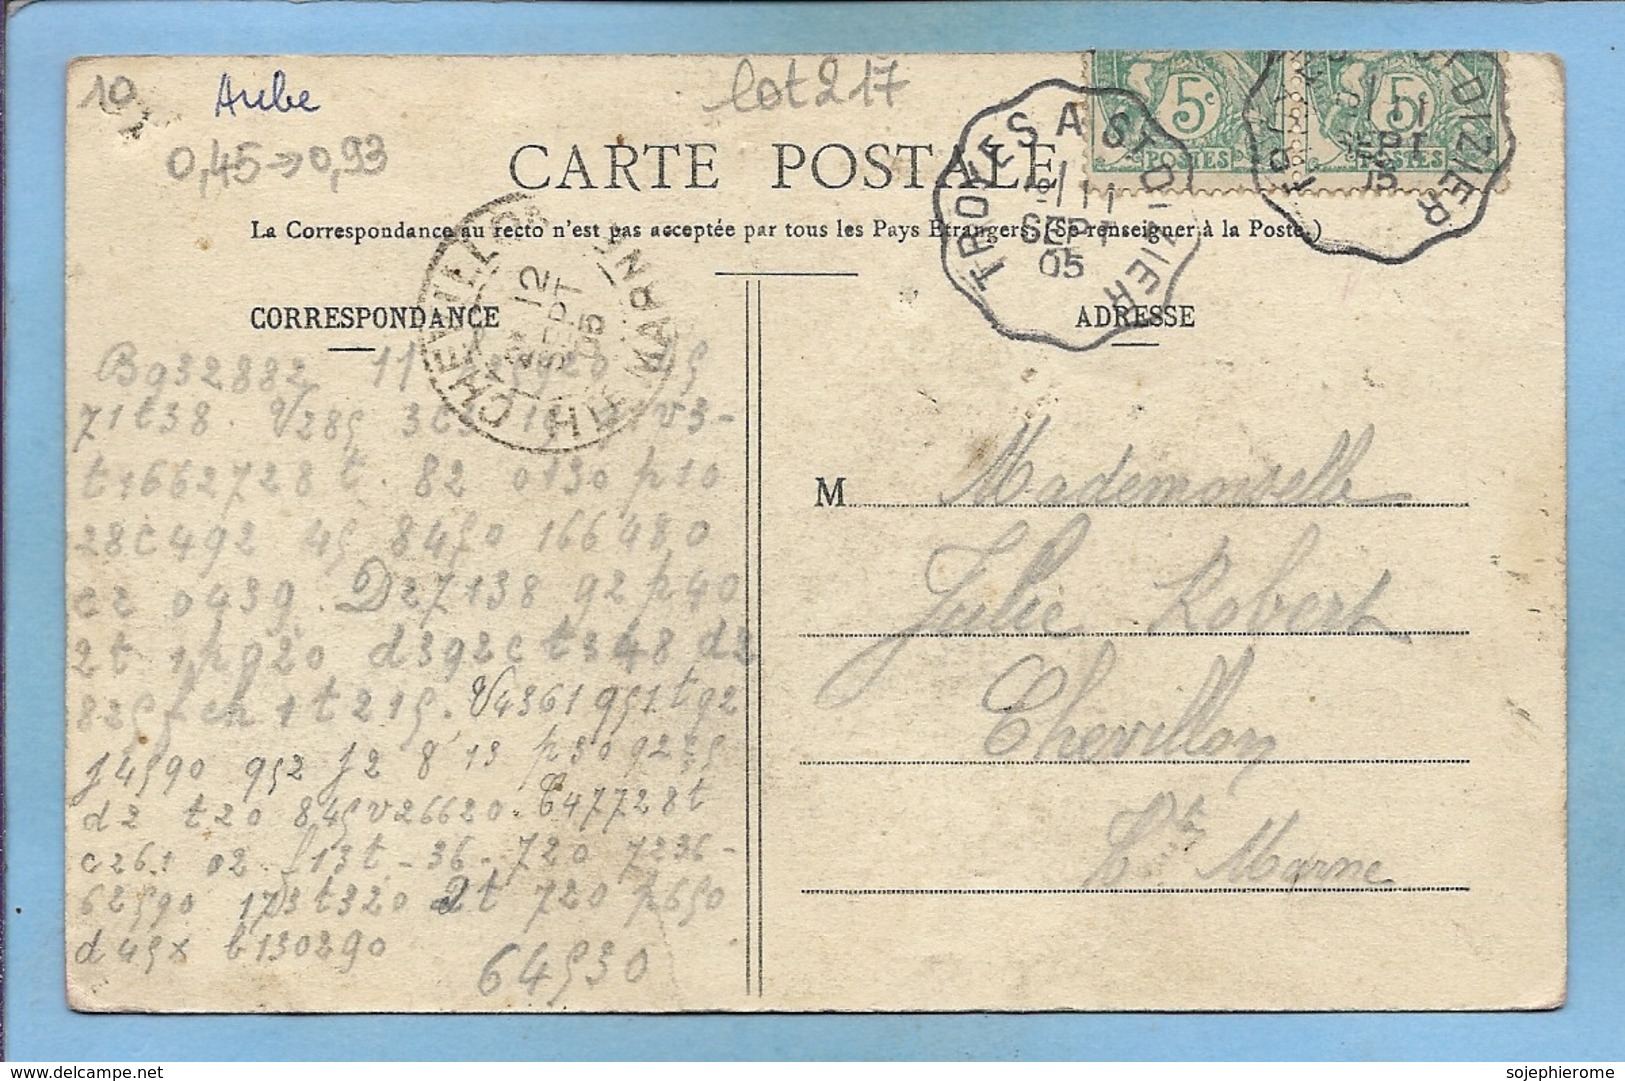 10
Aube
lot 217
0,45→0,93
CARTE POSTALE
La Correspondance au recto n'est pas acceptée par tous les Pays Etrangers. (Se renseigner à la Poste.)
TROYES A ST DIZIER
11
SEPT
05
ST DIZIER
11
SEPT
05
5c
POSTES
5c
POSTES
CHEVILLON
12
SEPT
05
HTE MARNE
CORRESPONDANCE
ADRESSE
B932882 11 45
71t38. V285 3t3 v3-
t1662728t. 82 0130 p10
28c492 45 8450 166480
c2 0439. D27138 92 p40
2t 1,p920 d392c t348 d2
825 ch 1t215. V4361951t92
j4590 952 j2 8'13 p309235
d2 t20 845v26620. C47728t
c261 02. f13t-36. 720 7236-
62590 1703t320 2t 720 p650
d45x b130290
64530
M Mademoiselle
Julie Robert
Chevillon
Hte Marne
sojephierome
delcampe.net